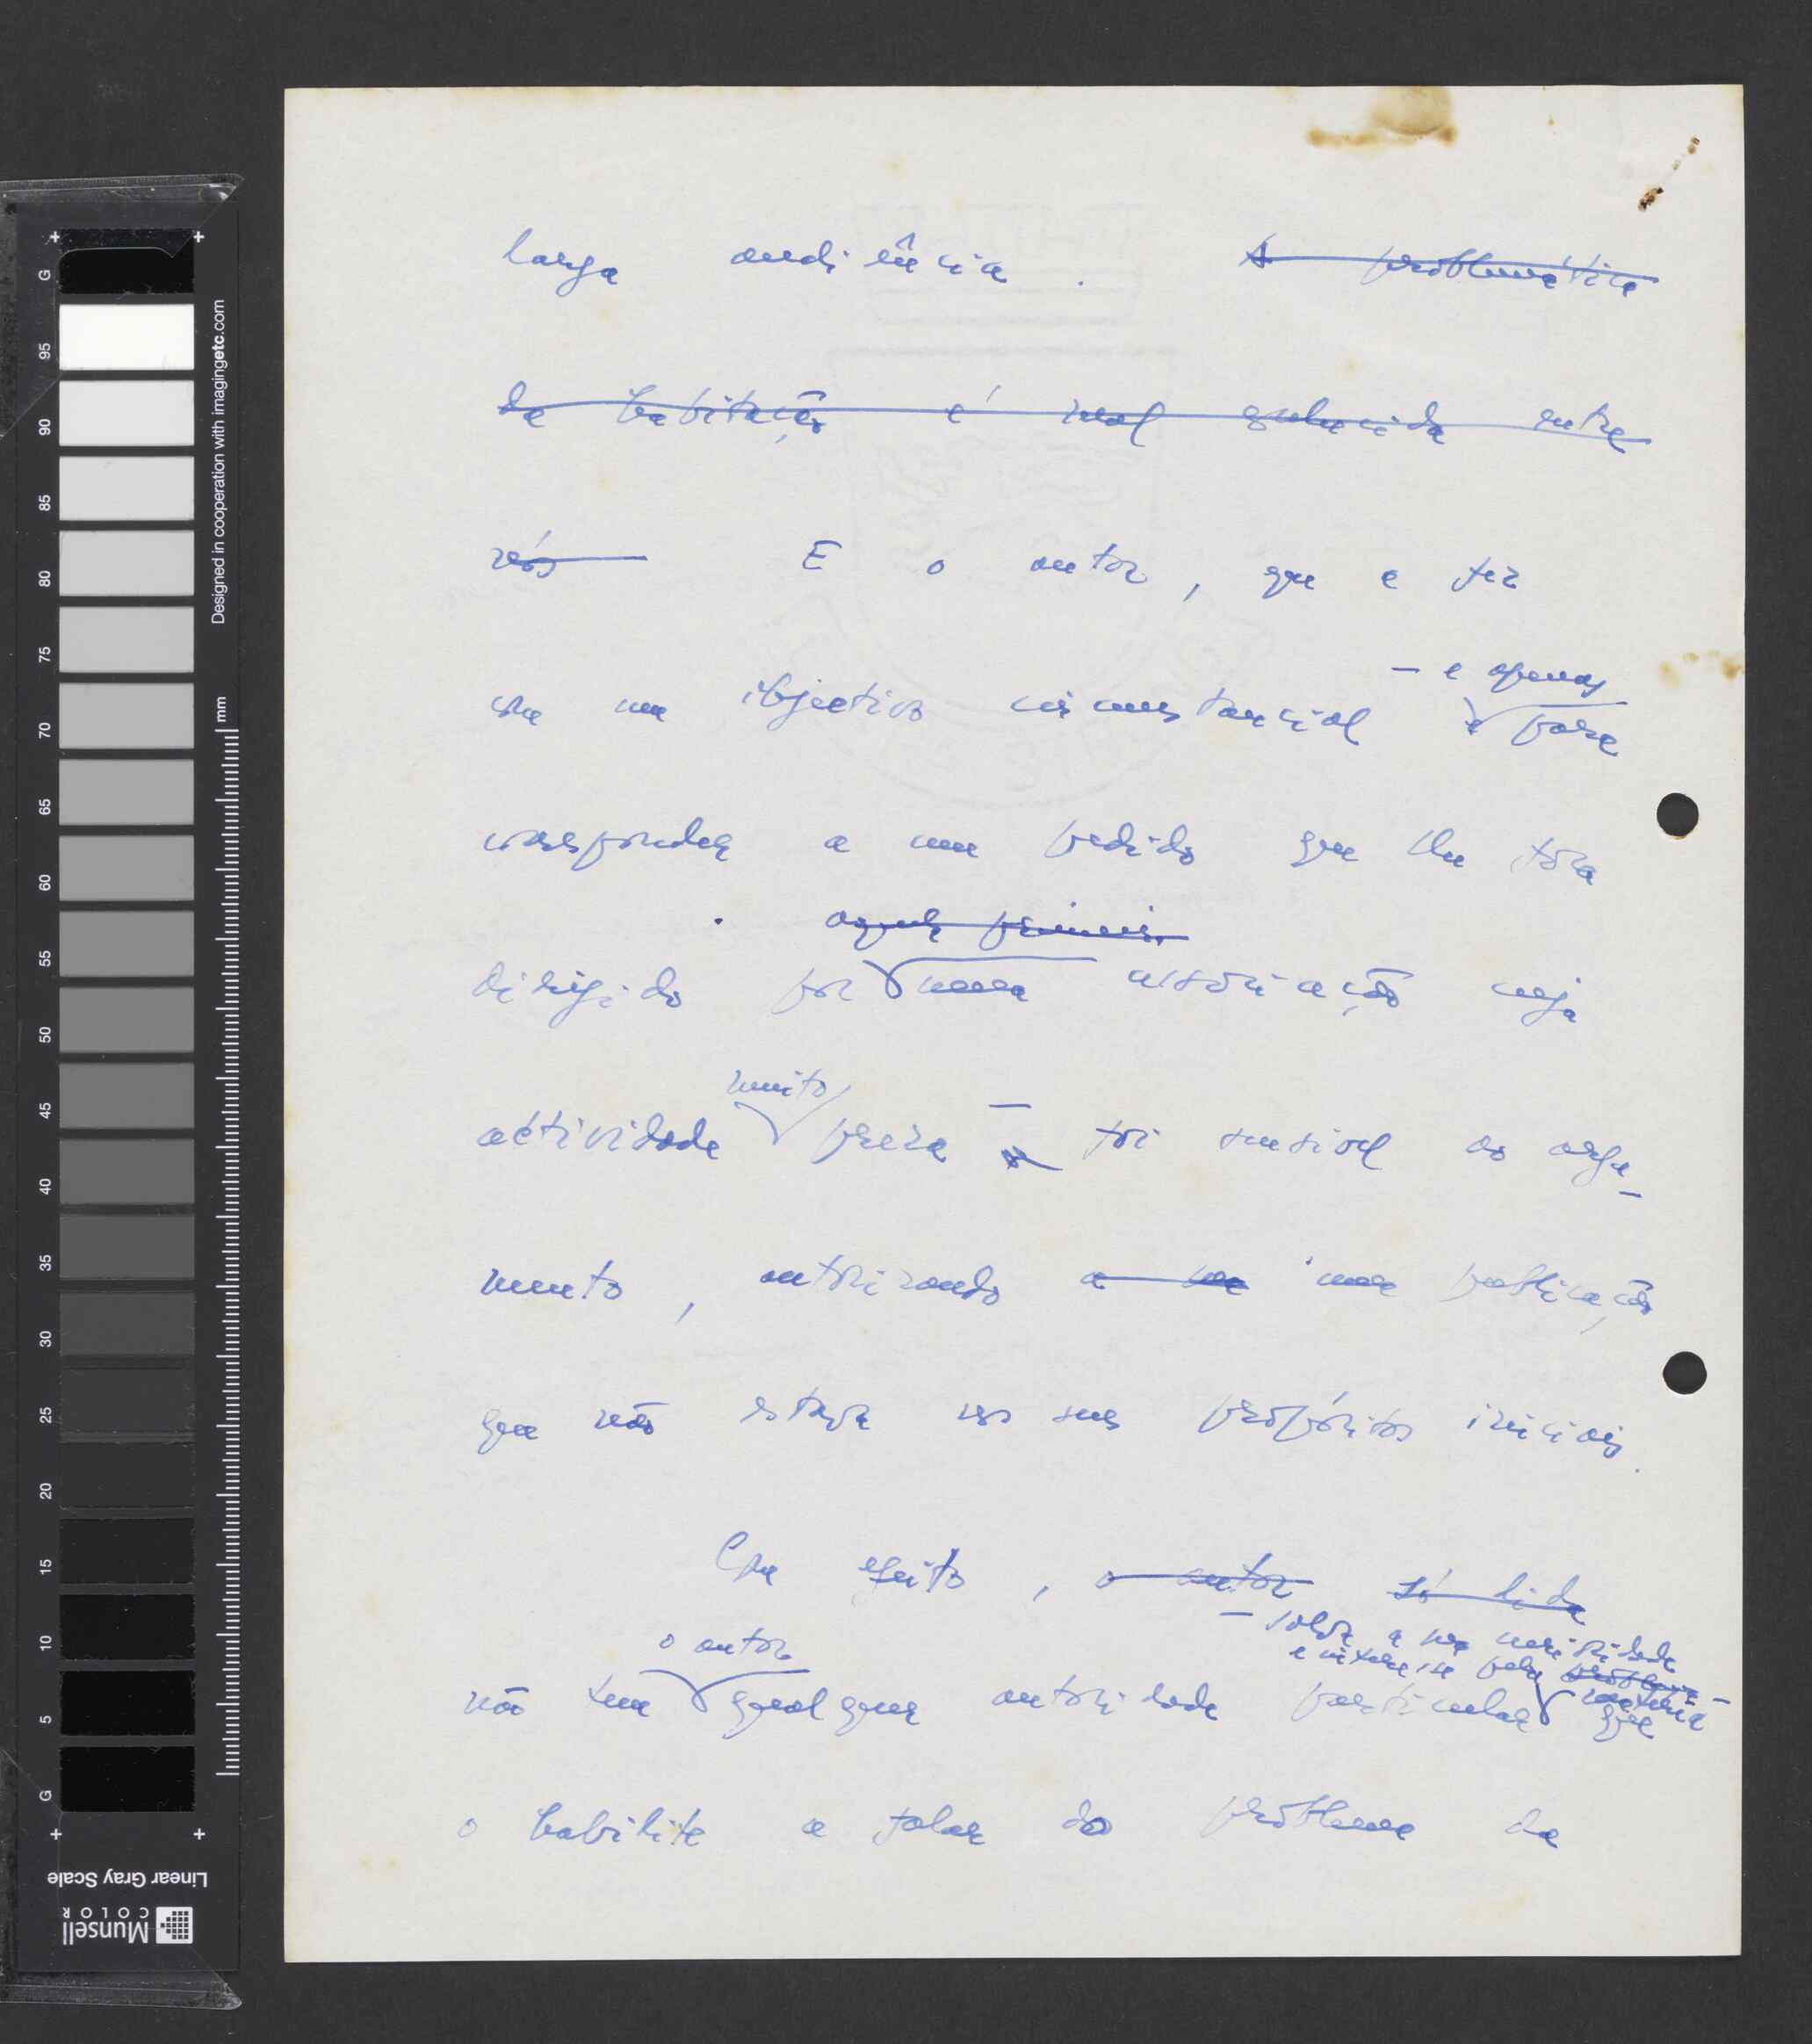 larga audiência. A problemática
da habitação é mal conhecida entre
nós E o autor, que a fez
com um objectivo circunstancial
– e apenas
e para
corresponder a um pedido que lhe fora
aquele primeiro
dirigido por uma associação cuja
muito
actividade preza – foi sensível ao argu-
mento, autorizando a sua uma publicação
que não estava nos seus propósitos iniciais.
Com efeito, o autor só lida
– salvo a sua curiosidade
e interesse pelo problema –
matéria
o autor
não tem qualquer autoridade particular que
o habilite a falar do problema da
G
95
90
85
80
75
70
65
60
55
50
45
40
35
30
25
20
15
10
5
G
Designed in cooperation with imagingetc.com
mm
Linear Gray Scale
Munsell
COLOR